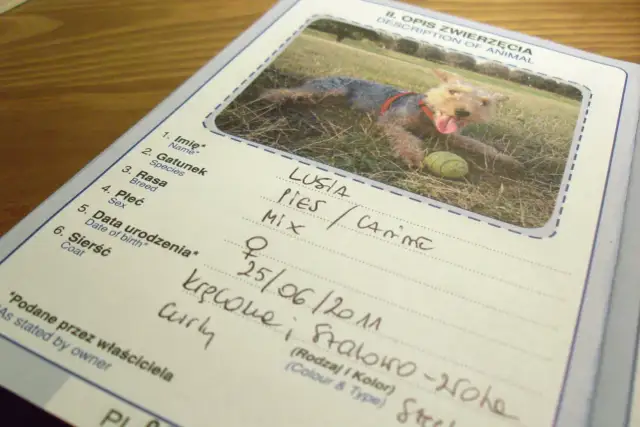 II. OPIS ZWIERZĘCIA
DESCRIPTION OF ANIMAL
1. Imię* LUSIA
Name*
2. Gatunek PIES / CANINE
Species
3. Rasa MIX
Breed
4. Płeć ♀
Sex
5. Data urodzenia* 25/06/2011
Date of birth*
6. Sierść kręcona i stalowo-złota
Coat curly
(Rodzaj i Kolor)
(Colour & Type)
*Podane przez właściciela
As stated by owner